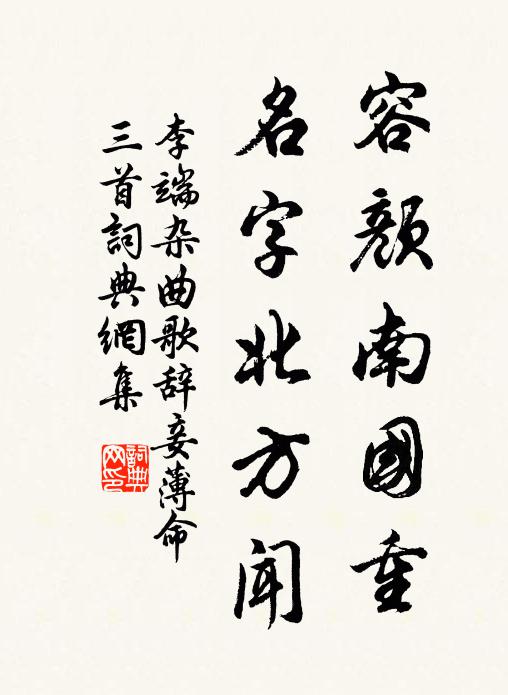 容颜南國重
名字北方闻
李端杂曲歌辞妾薄命
三首詞典網集
詞典
网印